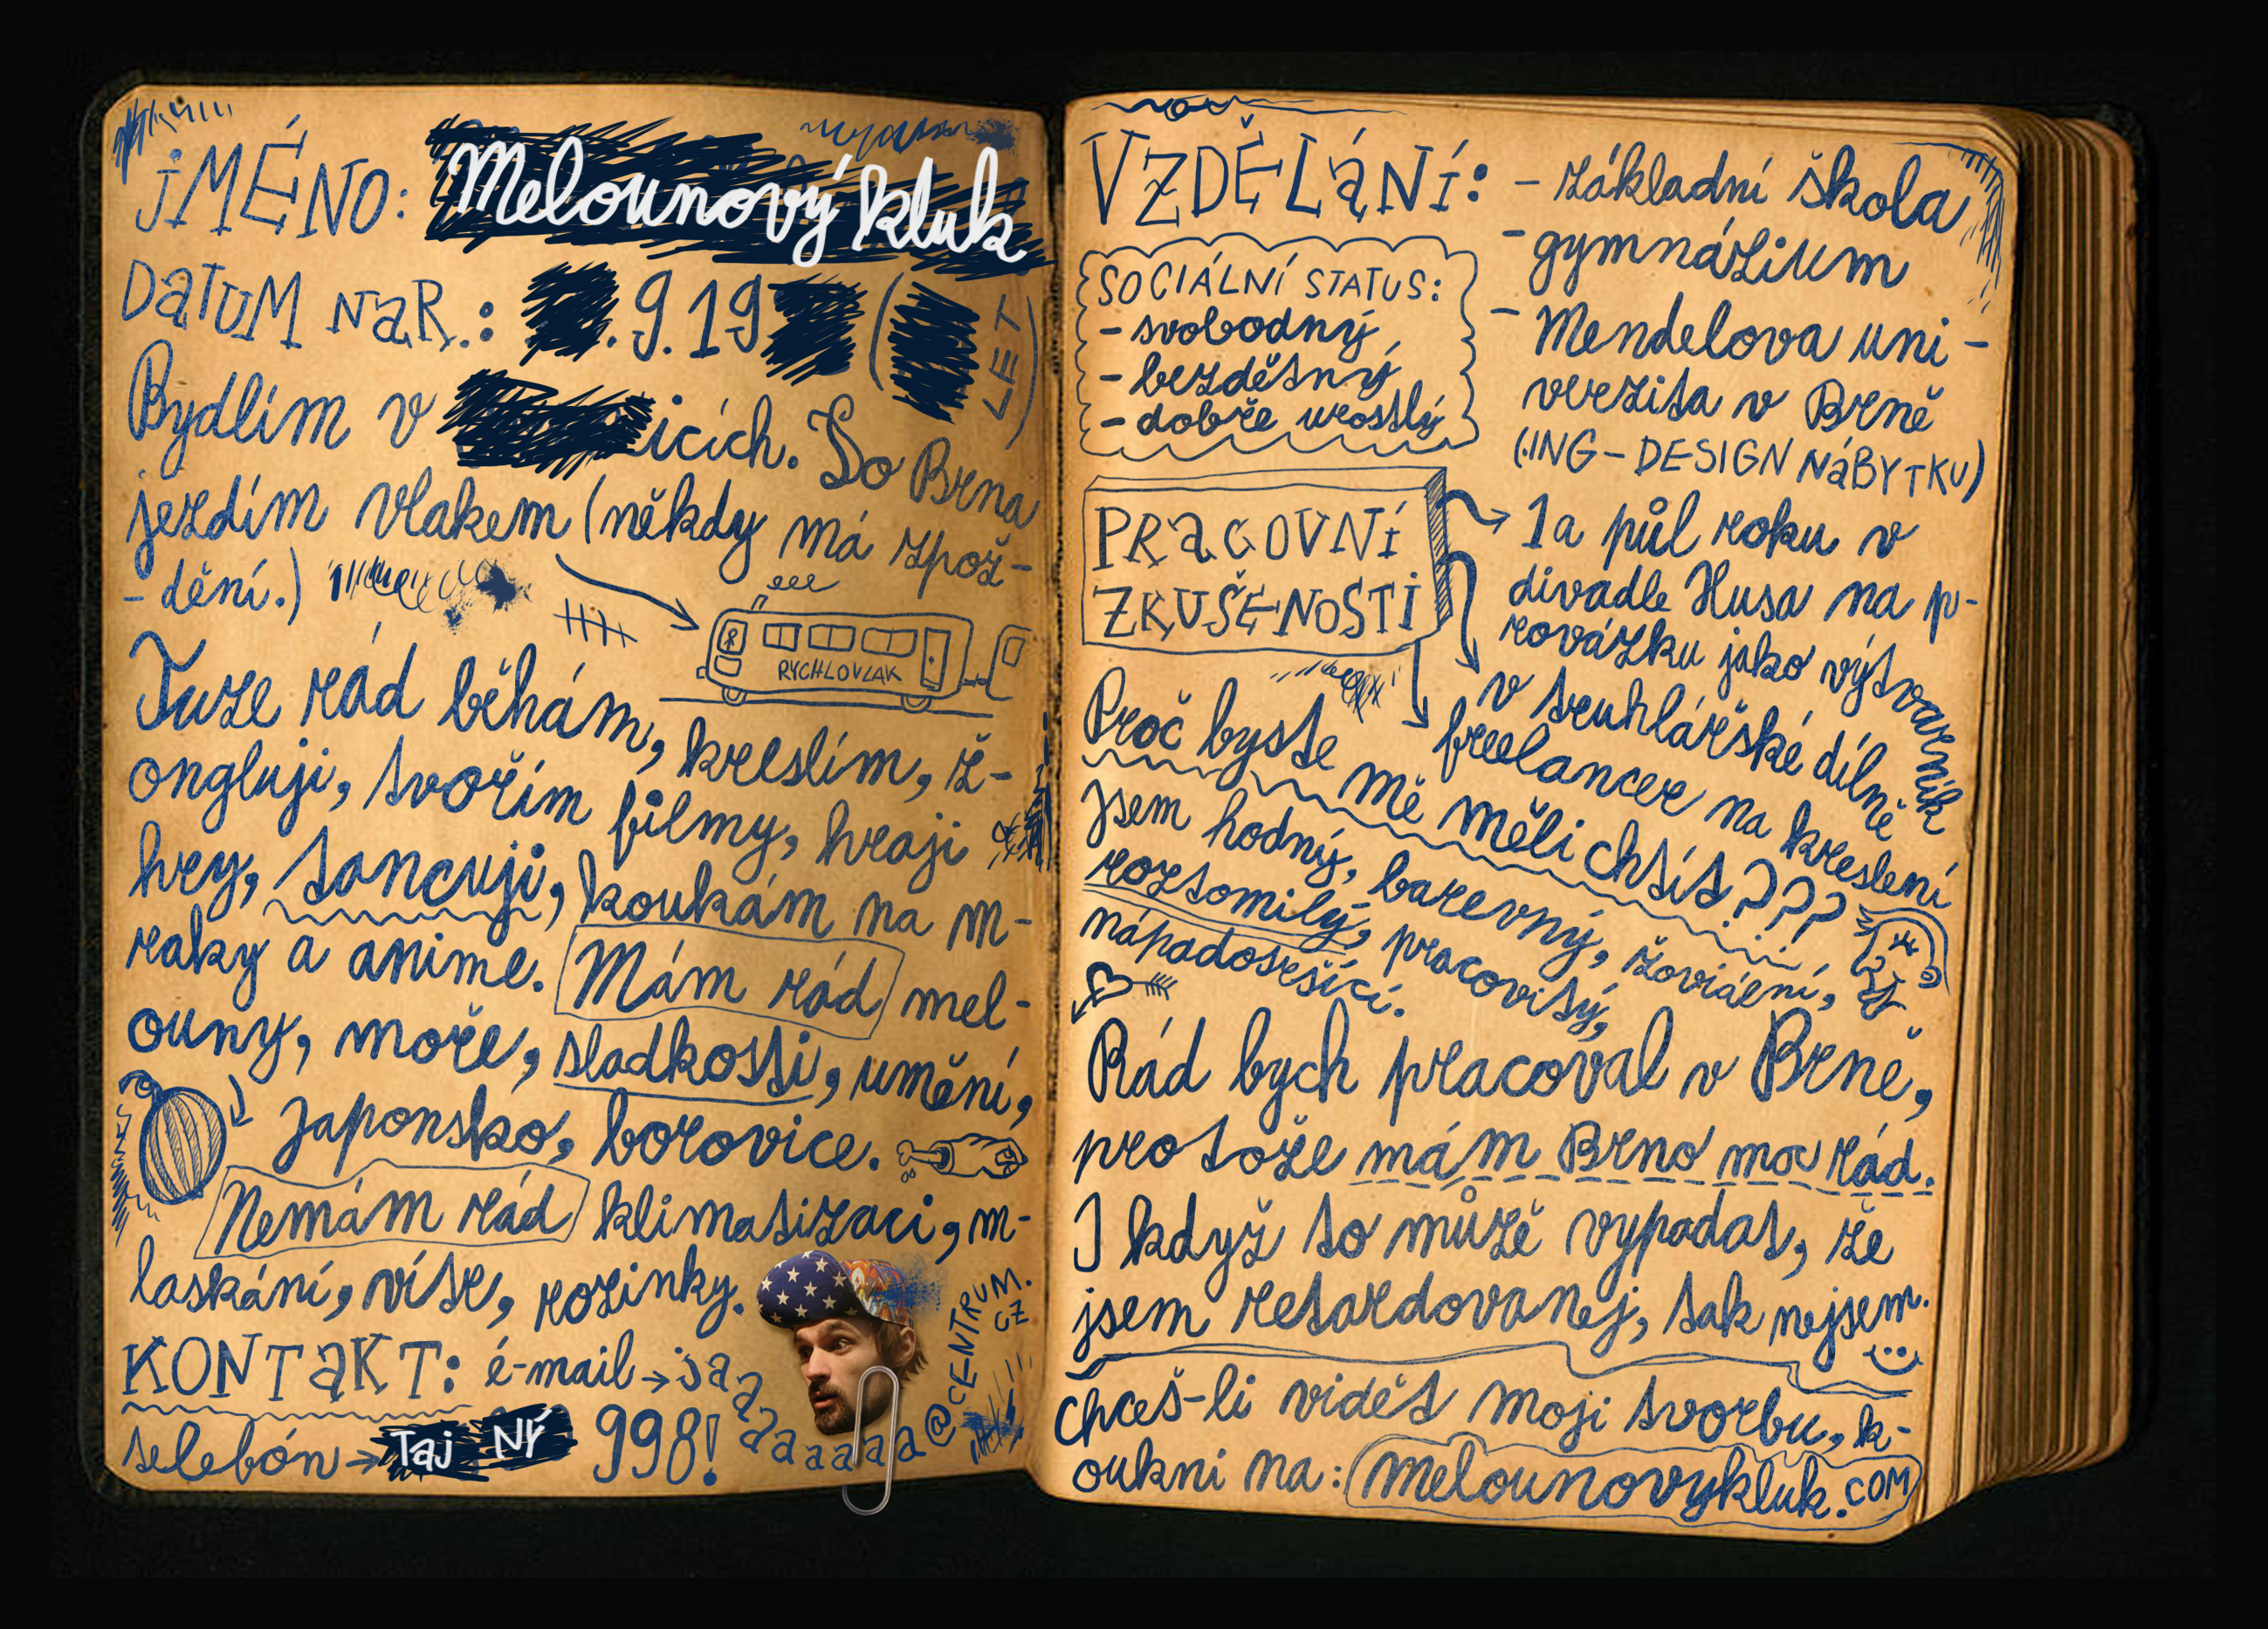 JMÉNO: Melounový kluk
DATUM NAR.: .9.19 ( LET)
Bydlím v icích. Do Brna
jezdím vlakem (někdy má zpož-
-dění.)
RYCHLOVLAK
Tuze rád běhám, kreslím, ž-
ongluji, tvořím filmy, hraji
hry, tancuji, koukám na m-
raky a anime. Mám rád mel-
ouny, moře, sladkosti, umění,
Japonsko, borovice.
Nemám rád klimatizaci, m-
laskání, víte, rozinky.
KONTAKT: é-mail → jaaaaaaaaa@CENTRUM.CZ
telefón → Taj NÝ 998!
VZDĚLÁNÍ: - základní škola
- gymnázium
- Mendelova uni-
verzita v Brně
(ING - DESIGN NÁBYTKU)
SOCIÁLNÍ STATUS:
- svobodný
- bezdětný
- dobře urostlý
PRACOVNÍ
ZKUŠENOSTI
1 a půl roku v
divadle Husa na p-
rovázku jako výtvarník
v truhlářské dílně
freelancer na kreslení
Proč byste mě měli chtít???
Jsem hodný, barevný, žoviální,
roztomilý, pracovitý,
nápadosršící.
Rád bych pracoval v Brně,
protože mám Brno moc rád.
I když to může vypadat, že
jsem retardovanej, tak nejsem.
chceš-li vidět moji tvorbu, k-
oukni na: melounovykluk.COM